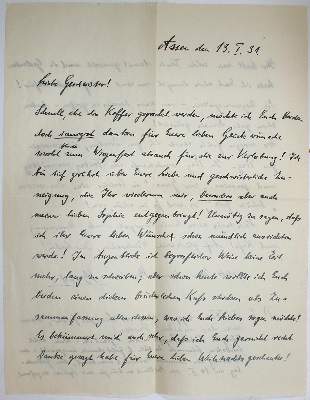 Assen den 13. I. 31
Liebe Geschwister!
Schnell, ehe die Koffer gepackt werden, möchte ich Euch Beiden
doch innigst danken für Eure lieben Glückwünsche
sowohl zum Wiegenfest als auch für die zur Verlobung! Ich
bin tief gerührt über Eure Liebe und geschwisterliche Zu-
neigung, die Ihr wiederum mir, besonders aber auch
meiner lieben Sophie entgegenbringt! Unnötig zu sagen, daß
ich ihr Eure lieben Wünsche schon mündlich ausrichten
werde! Im Augenblick ist begreiflicher Weise keine Zeit
mehr, lang zu schreiben; aber schon heute wollte ich Euch
beiden einen dicken brüderlichen Kuß schicken als Zu-
sammenfassung alles dessen, was ich Euch sagen möchte!
Es bekümmert mich auch sehr, daß ich Euch garnicht recht
Danke gesagt habe für Eure lieben Weihnachtsgeschenke!